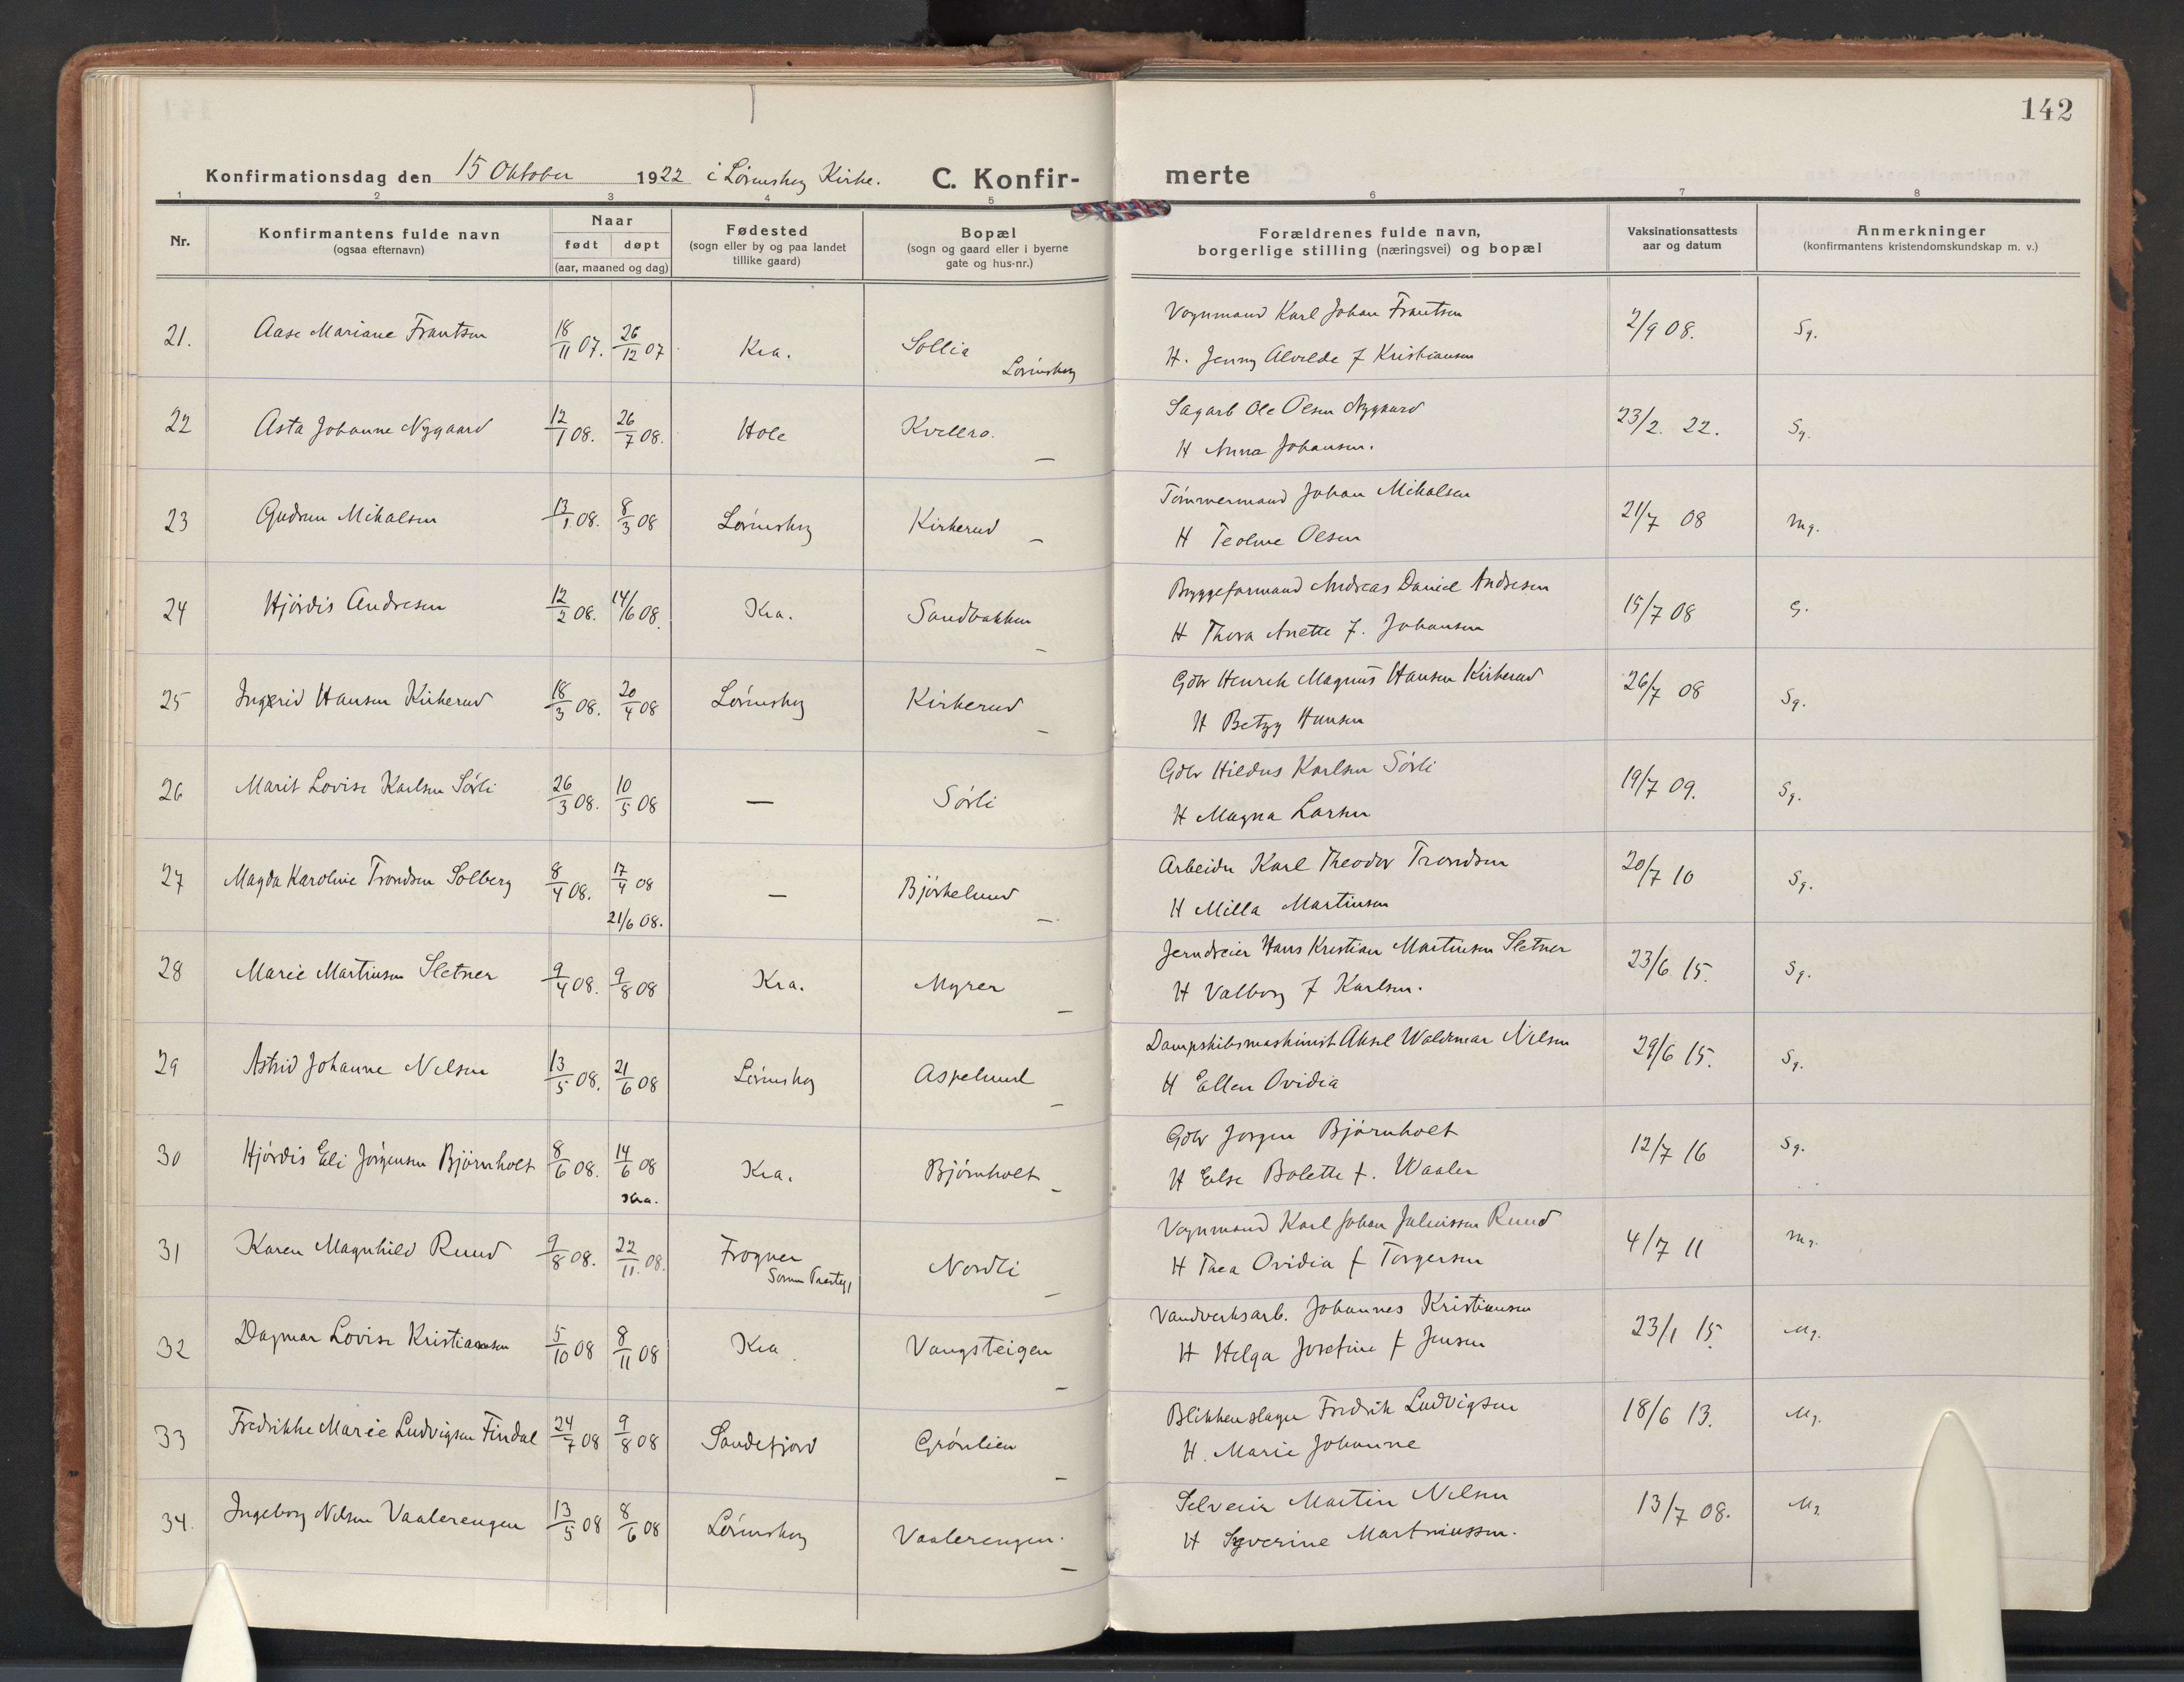 142
Konfirmationsdag den 15 Oktober 1922 i Lørenskog Kirke. C. Konfir- merte
1 2 3 4 5 6 7 8
Nr. Konfirmantens fulde navn (ogsaa efternavn) Naar født døpt (aar, maaned og dag) Fødested (sogn eller by og paa landet tillike gaard) Bopæl (sogn og gaard eller i byerne gate og hus-nr.) Forældrenes fulde navn, borgerlige stilling (næringsvei) og bopæl Vaksinationsattests aar og datum Anmerkninger (konfirmantens kristendomskundskap m. v.)
21. Aase Mariane Frantsen 18/11 07. 26/12 07 Kra. Sollia Lørenskog Vognmand Karl Johan Frantsen 2/9 08. Sg.
H. Jenny Alvilde f Kristiansen
22 Asta Johanne Nygaard 12/1 08. 26/7 08. Hole Kvellro. — Sagarb Ole Olsen Nygaard 23/2. 22. Sg.
H Anna Johansen.
23 Gudrun Mikalsen 13/1 08. 8/3 08 Lørenskog Kirkerud — Tømmermand Johan Mikalsen 21/7 08 Mg.
H Teoline Olsen
24 Hjørdis Andresen 12/2 08. 14/6 08. Kra. Sandbakken — Bryggeformand Andreas Daniel Andresen 15/7 08 G.
H Thora Anette f. Johansen
25 Ingerid Hansen Kirkerud 18/3 08. 20/4 08 Lørenskog Kirkerud — Gdbr Henrik Magnus Hansen Kirkerud 26/7 08 Sg.
H Betzy Hansen
26 Marit Lovise Karlsen Sørli 26/3 08. 10/5 08 — Sørli Gdbr Hildus Karlsen Sørli 19/7 09. Sg.
H Magna Larsen
27 Magda Karoline Trondsen Solberg 8/4 08. 17/4 08 21/6 08. — Bjørkelund — Arbeider Karl Theodor Trondsen 20/7 10 Sg.
H Milla Martinsen
28 Marie Martinsen Sletner 9/4 08. 9/8 08 Kra. Myrer — Jerndreier Hans Kristian Martinsen Sletner 23/6 15. Sg.
H Valborg f Karlsen.
29 Astrid Johanne Nilsen 13/5 08. 21/6 08 Lørenskog Aspelund — Dampskibsmaskinist Aksel Waldemar Nilsen 29/6 15. Sg.
H Ellen Ovidia
30 Hjørdis Eli Jørgensen Bjørnholt 8/6 08. 14/6 08 Kra. Kra. Bjørnholt — Gdbr Jørgen Bjørnholt 12/7 16 Sg.
H Else Bolette f. Waaler
31 Karen Magnhild Ruud 9/8 08. 22/11. 08. Frogner Sørum Prestegj Nordli — Vognmand Karl Johan Juliussen Ruud 4/7 11 Mg.
H Thea Ovidia f Torgersen
32 Dagmar Lovise Kristiansen 5/10 08 8/11 08 Kra Vangsteigen — Vandverksarb. Johannes Kristiansen 23/1 15. Mg.
H Helga Josefine f Jensen
33 Fredrikke Marie Ludvigsen Findal 24/7 08 9/8 08 Sandefjord Grønlien — Blikkenslager Fredrik Ludvigsen 18/6 13. Mg.
H. Marie Johanne
34. Ingeborg Nilsen Vaalerengen 13/5 08 8/6 08 Lørenskog Vaalerengen. — Selveier Martin Nilsen 13/7 08. Mg.
H Syverine Martiniussen.